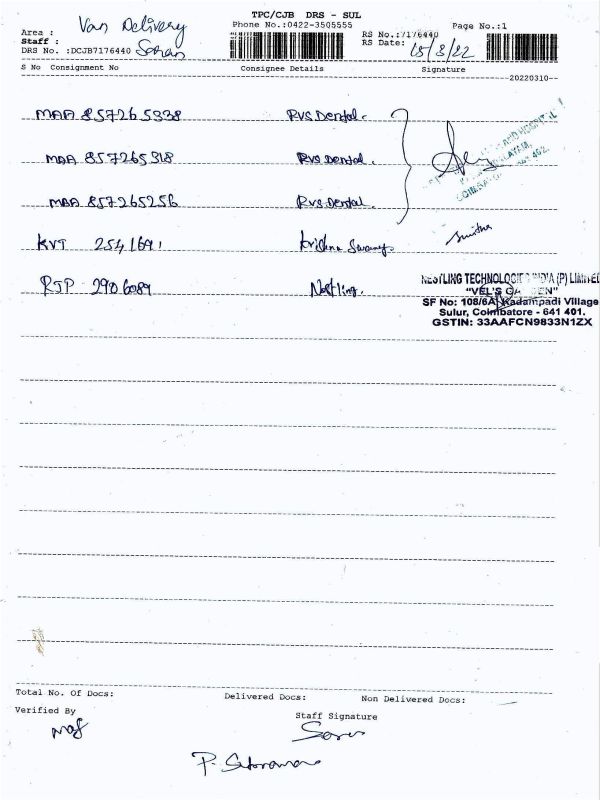 TPC/CJB DRS - SUL
Area : Van Delivery
Phone No.:0422-3505555
Page No.:1
Staff :
RS No.:7176440
DRS No. :DCJB7176440
RS Date: 15/3/22
S No Consignment No Consignee Details Signature
20220310
MAA 857265338 RVS Dental.
MAA 857265318 RVS Dental.
MAA 857265256 RVS Dental.
KVT 2541691 Krishna Swamy
RJP 2906089 Nestling.
NESTLING TECHNOLOGIES INDIA (P) LIMITED
"VEL'S GARDEN"
SF No: 108/6A, Kadampadi Village
Sulur, Coimbatore - 641 401.
GSTIN: 33AAFCN9833N1ZX
Total No. Of Docs: Delivered Docs: Non Delivered Docs:
Verified By
Staff Signature